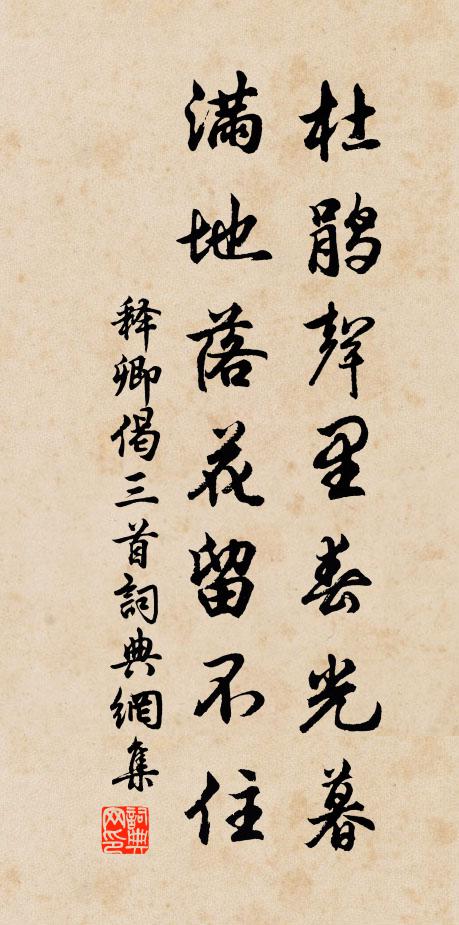 杜鹃聲里春光暮
滿地落花留不住
释卿偈三首詞典網集
詞典網印